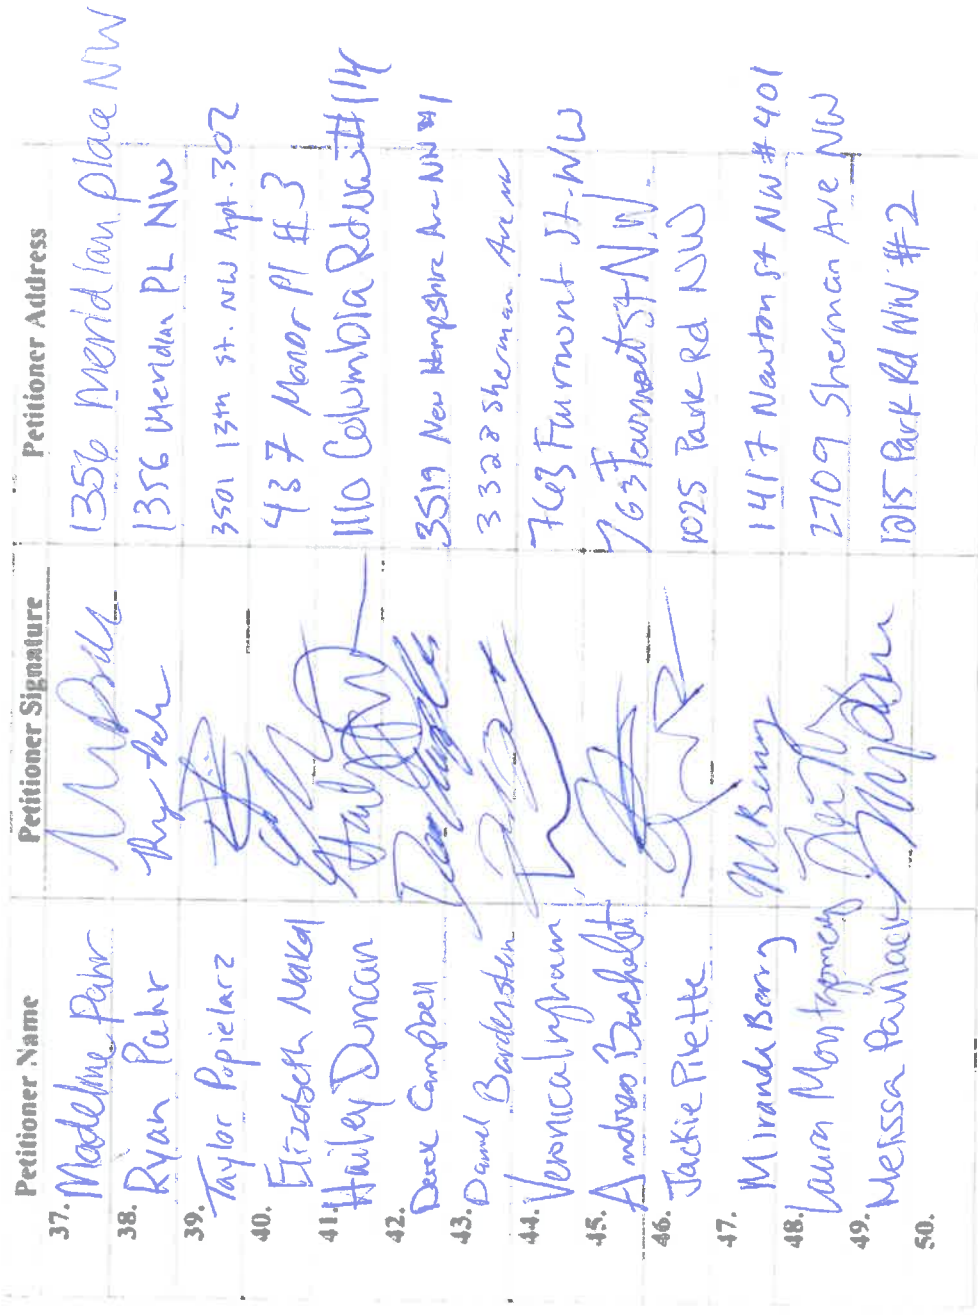 Petitioner Name Petitioner Signature Petitioner Address
37. Madeline Pahr 1356 Meridian Place NW
38. Ryan Pahr 1356 Meridian PL NW
39. Taylor Popielarz 3501 13th St. NW Apt. 302
40. Elizabeth 437 Manor Pl #3
41. Hailey Duncan 1110 Columbia Rd NW #114
42. Derek Campbell 3519 New Hampshire Ave NW #1
43. Daniel 3328 Sherman Ave NW
44. Veronica Ingham 763 Fairmont St. NW
45. Andreas 763 Fairmont St NW
46. Jackie Pilette 1025 Park Rd NW
47. Miranda Berry MBerry 1417 Newton St NW #401
48. Laura Montgomery 2709 Sherman Ave NW
49. Melissa 1215 Park Rd NW #2
50.